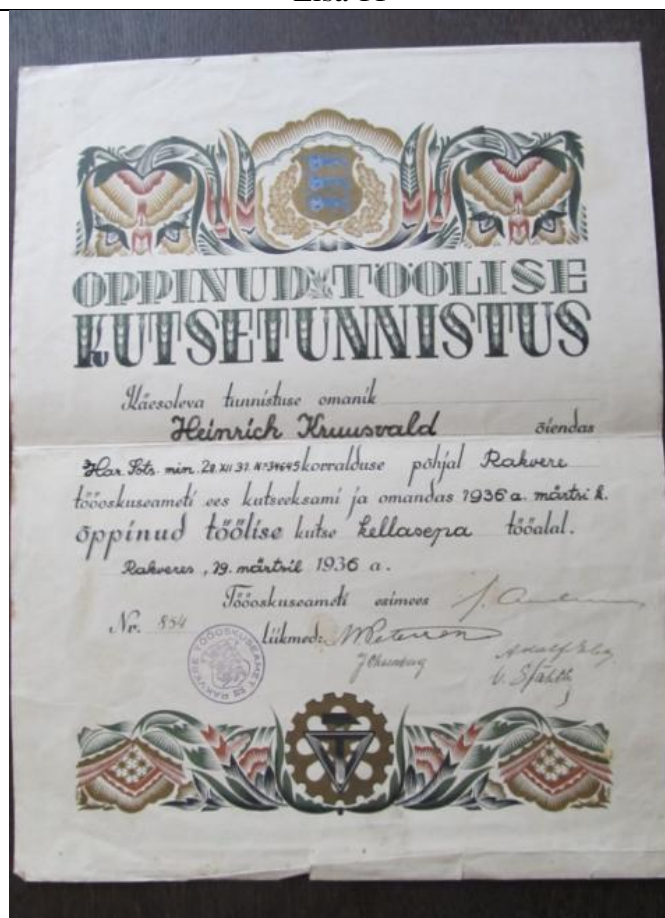 ÕPPINUD TÖÖLISE
KUTSETUNNISTUS
Käesoleva tunnistuse omanik
Heinrich Kruusvald õiendas
Har. Sots. min. 28. XII 31. Nº 34645 korralduse põhjal Rakvere
tööoskuseameti ees kutseeksami ja omandas 1936 a. märtsi k.
õppinud töölise kutse kellasepa tööalal.
Rakveres, 29. märtsil 1936 a.
Tööoskuseameti esimees
Nr. 854 liikmed:
RAKVERE TÖÖOSKUSEAMET